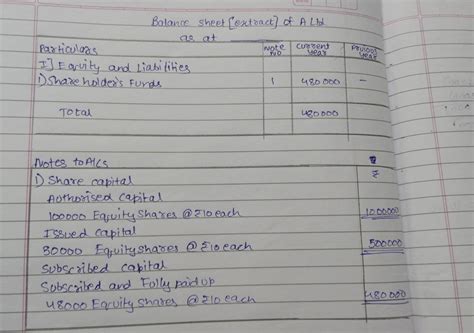 Balance sheet [extract] of A Ltd
as at
Particulars Note No current year Previous year
I] Equity and Liabilities
1) Shareholder's Funds 1 480000 -
Total 480000
Notes to A/Cs ₹
1) Share capital ₹
Authorised Capital
100000 Equity Shares @ ₹10 each 1000000
Issued Capital
50000 Equity Shares @ ₹10 each 500000
Subscribed Capital
Subscribed and Fully paid up
48000 Equity Shares @ ₹10 each 480000